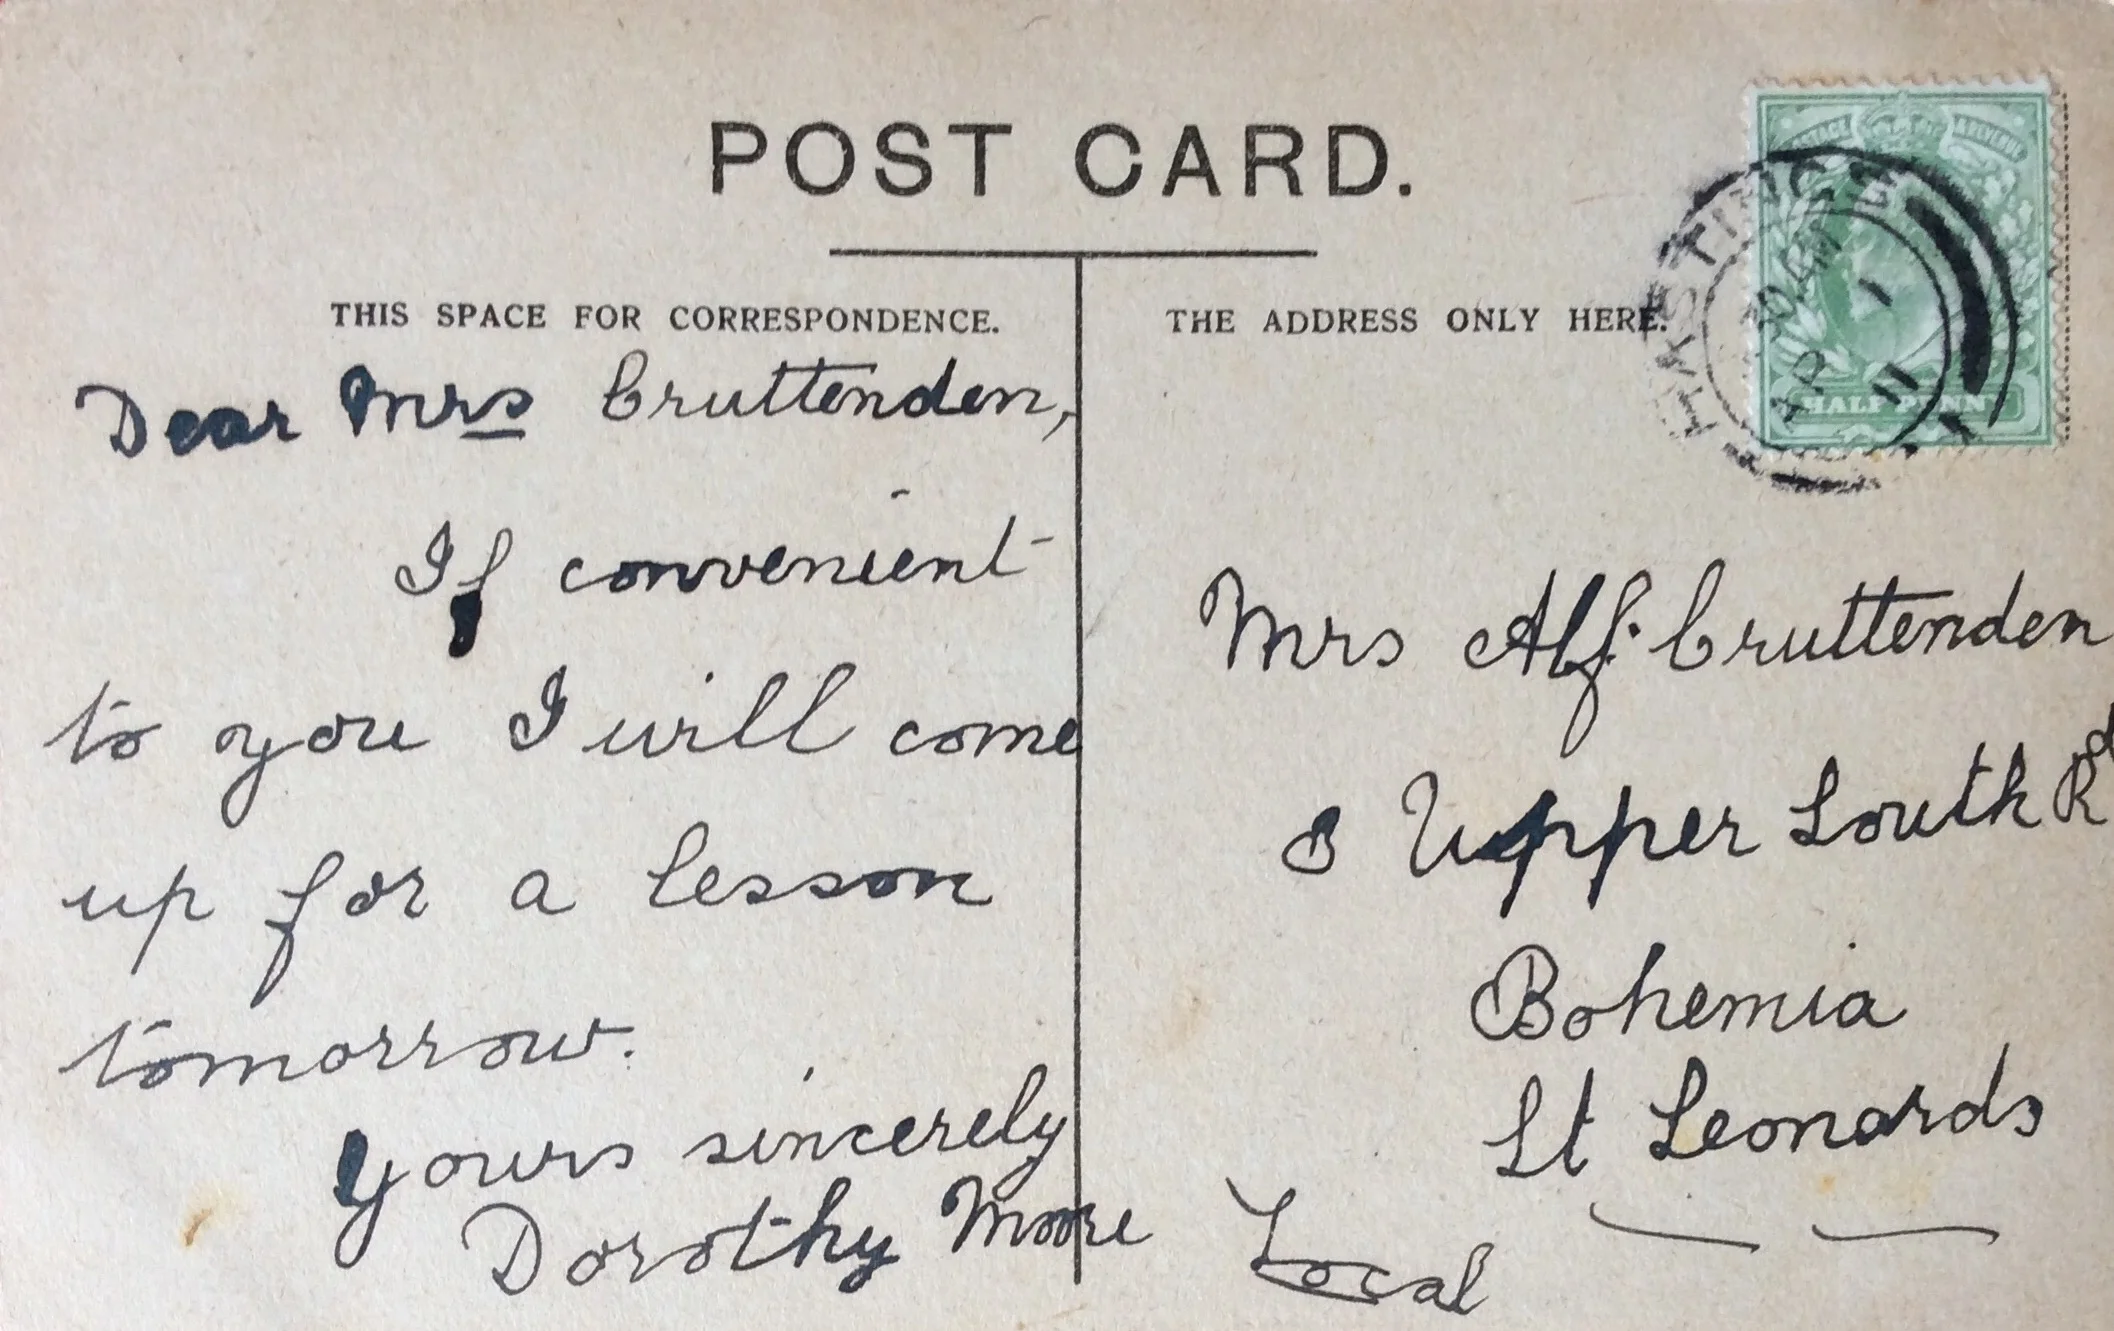 POST CARD.
THIS SPACE FOR CORRESPONDENCE.
Dear Mrs Cruttenden,
If convenient
to you I will come
up for a lesson
tomorrow.
Yours sincerely
Dorothy Moore
THE ADDRESS ONLY HERE.
Mrs Alf. Cruttenden
8 Upper South Rd
Bohemia
St Leonards
Local
POSTAGE & REVENUE
HALFPENNY
HASTINGS
AM
AP 1
11